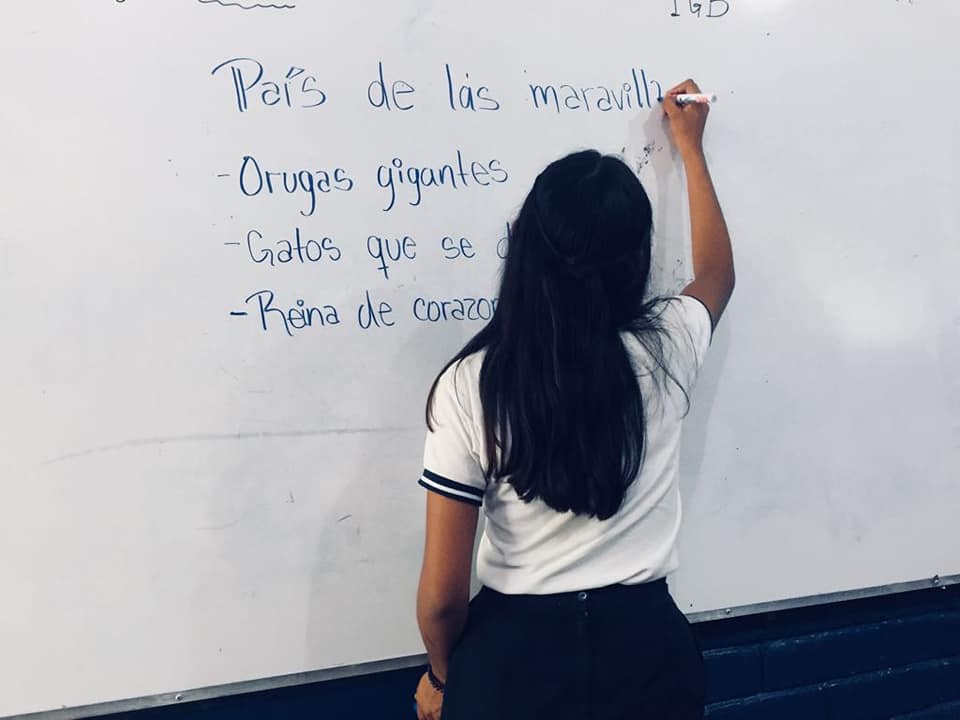 IGB
País de las maravilla
- Orugas gigantes
- Gatos que se
- Reina de corazon